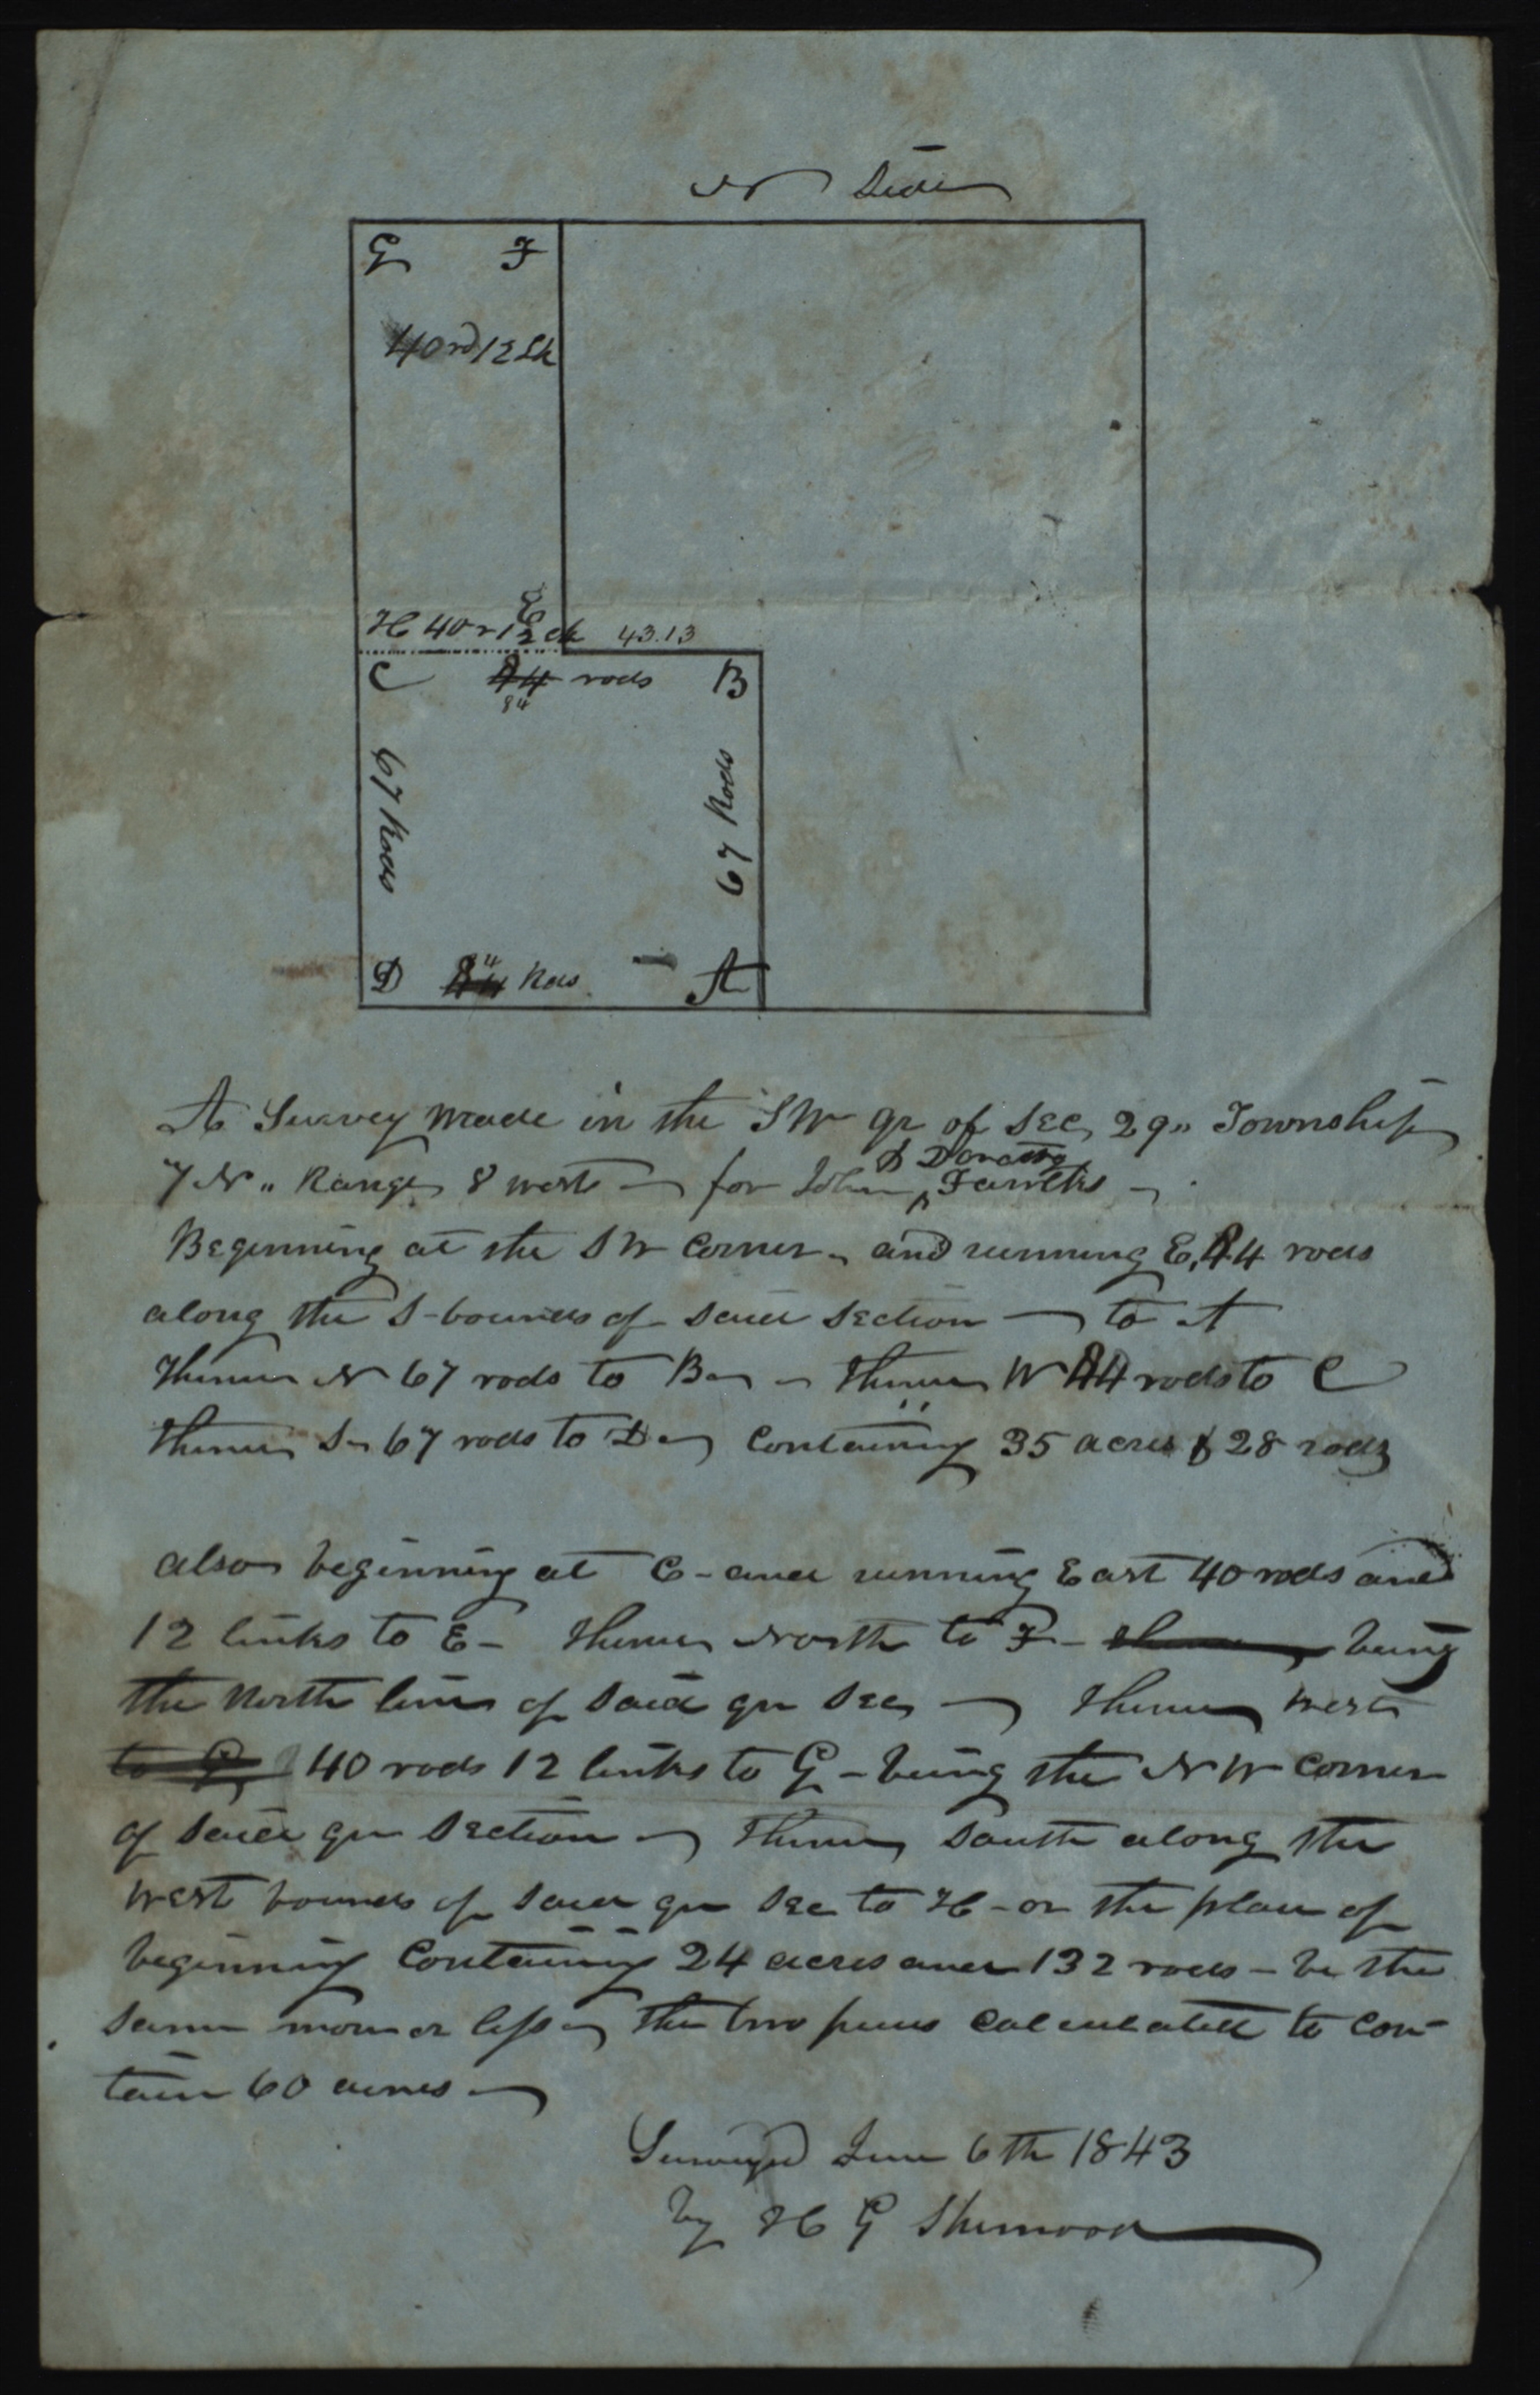 N Side
G F
40 rd 12 Lk
E
H 40 r 12 lk 43.13
C 44 rods B
84
67 Rods
67 Rods
84
D 44 Rods A
A Survey made in the SW qr of Sec, 29,, Township
& D
7 N,, Range 8 west — for John Fawcks —
Beginning at the SW corner, and running E, 84 rods
along the S-bounds of said section — to A
Thence N 67 rods to B — Thence W 84 rods to C
Thence S 67 rods to D — Containing 35 acres & 28 rods
also beginning at C - and running East 40 rods and
12 links to E - Thence North to F - Thence being
the North line of said qr Sec — Thence west
to G 40 rods 12 links to G - being the NW corner
of said qr Section — Thence South along the
west bounds of said qr Sec to H - or the place of
beginning Containing 24 acres and 132 rods - be the
same more or less — The two pieces calculated to con-
tain 60 acres —
Surveyed June 6th 1843
by H G Sherwood